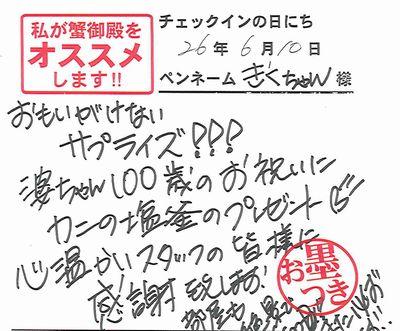 私が蟹御殿を
オススメ
します!!
チェックインの日にち
26年6月10日
ペンネーム ぎくちゃん 様
おもいがけない
サプライズ!!!
婆ちゃん100歳のお祝いに
カニの塩釜のプレゼント
心温かいスタッフの皆様に
感謝致します!
部屋も
お墨
つき